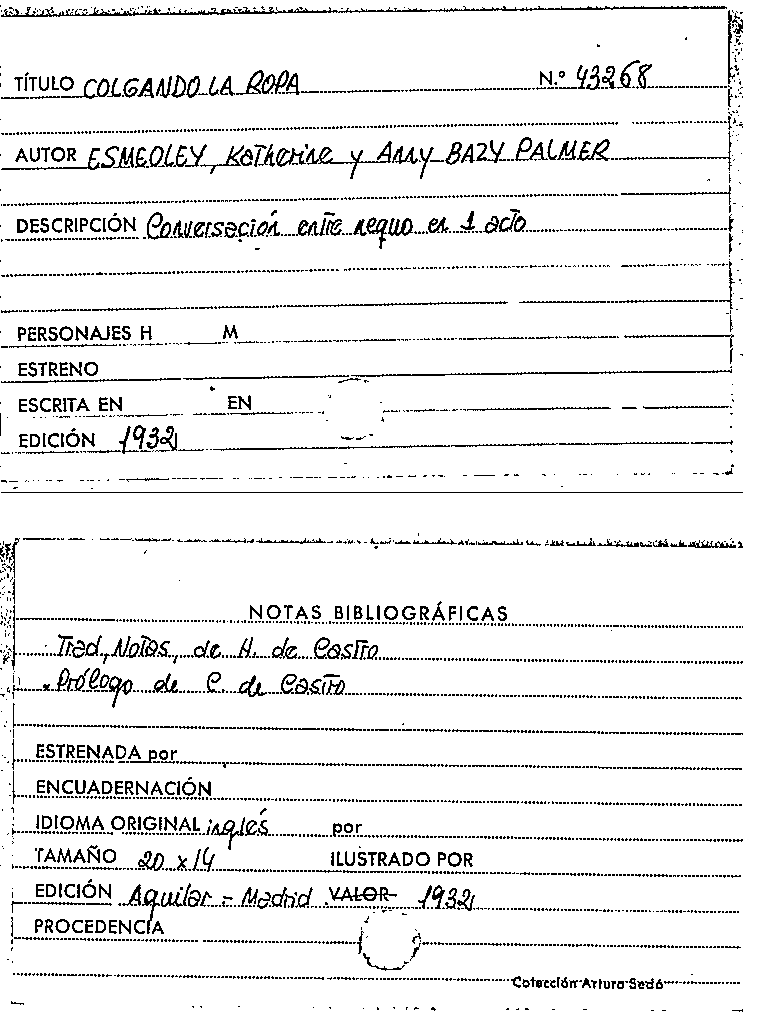 TÍTULO COLGANDO LA ROPA N.º 43268
AUTOR ESMEDLEY, Katherine y Anny BAZY PALMER
DESCRIPCIÓN Conversación entre nequo en 1 acto
PERSONAJES H M
ESTRENO
ESCRITA EN EN
EDICIÓN 1932
NOTAS BIBLIOGRÁFICAS
Trad, Notas, de H. de Castro
. Prólogo de C. de Castro
ESTRENADA por
ENCUADERNACIÓN
IDIOMA ORIGINAL inglés por
TAMAÑO 20 x 14 ILUSTRADO POR
EDICIÓN Aguilar = Madrid VALOR 1932
PROCEDENCIA
Colección Arturo Sedó